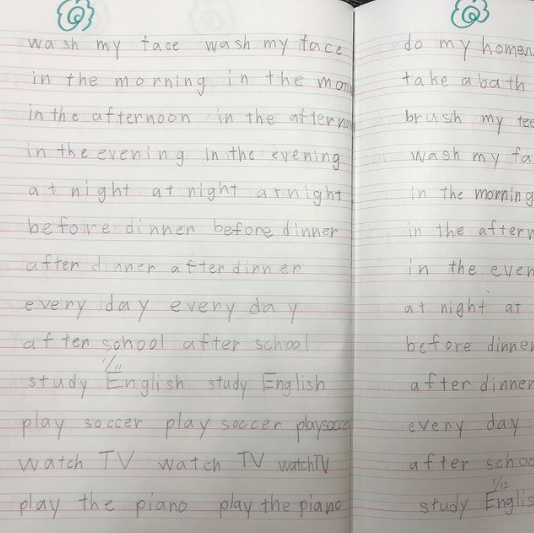 wash my face wash my face
in the morning in the mor
in the afternoon in the aftern
in the evening in the evening
at night at night at night
before dinner before dinner
after dinner after dinner
every day every day
after school after school
1/11
study English study English
play soccer play soccer play soccer
watch TV watch TV watch TV
play the piano play the piano
do my homew
take a bath
brush my tee
wash my fa
in the morning
in the aftern
in the even
at night at
before dinner
after dinner
every day
after schoo
1/12
study Englis